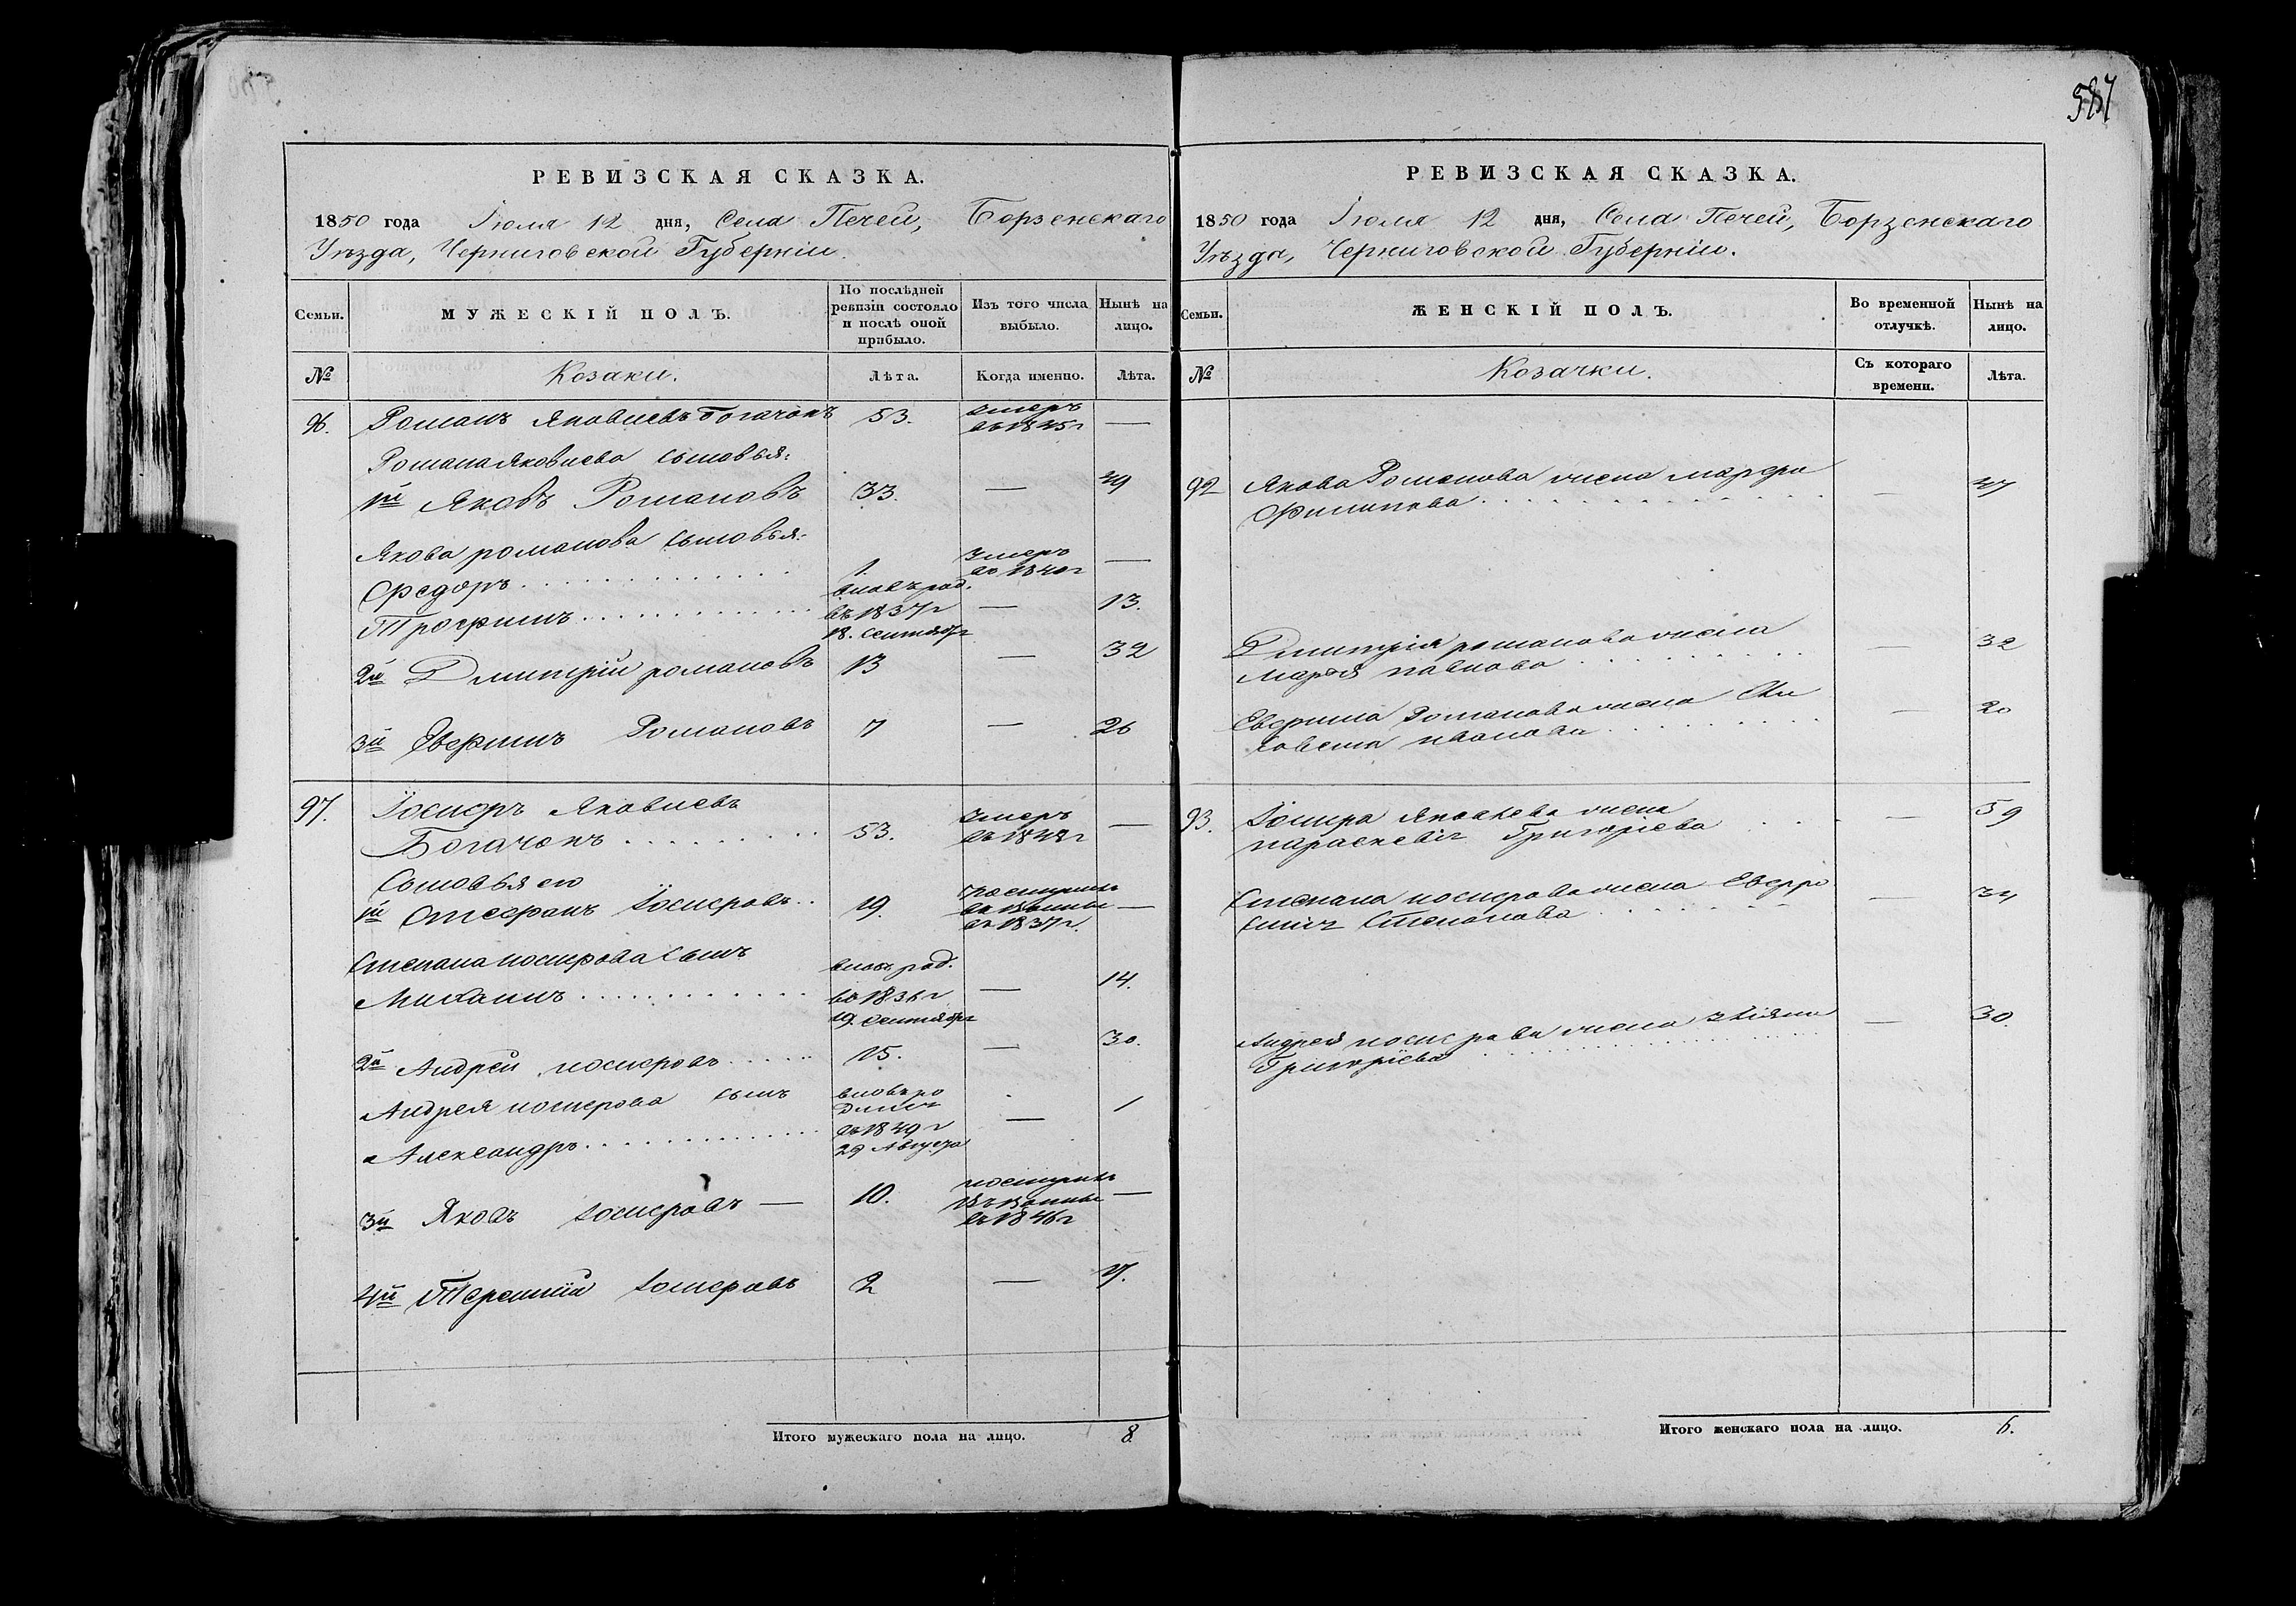 РЕВИЗСКАЯ СКАЗКА.
1850 года Іюля 12 дня, Села Печей, Борзенскаго
Уѣзда, Черниговской Губерніи.
Семьи.
МУЖЕСКІЙ ПОЛЪ.
По послѣдней ревизіи состояло и послѣ оной прибыло.
Изъ того числа выбыло.
Нынѣ на лицо.
№
Козаки.
Лѣта.
Когда именно.
Лѣта.
96. Романъ Яковлевъ Богачокъ 53. умеръ —
въ 1845 г
Романа Яковлева сыновья:
1й Яковъ Романовъ 33. — 49
Якова романова сыновья:
Федоръ 1. умеръ —
въ 1840 г
Трофимъ вновь род. — 13.
въ 1837 г
18. Сентября
2й Дмитрій романовъ 13 — 32
3й Евфимъ Романовъ 7 — 26
97. Іосифъ Яковлевъ
Богачокъ 53. умеръ —
Сыновья его
1й Стефанъ Іосифовъ 19. —
въ 1837 г.
Степана иосифова сынъ
Михаилъ вновь род. — 14.
19. Сентября
2й Андрей иосифовъ 15. — 30.
Андрея иосифова сынъ
Александръ вновь ро — 1
въ 1849 г
29 Августа
3й Яковъ Іосифовъ — 10. —
въ 1846 г
4й Терентій Іосифовъ 2 —
Итого мужескаго пола на лицо. 8.
РЕВИЗСКАЯ СКАЗКА.
1850 года Іюля 12 дня, Села Печей, Борзенскаго
Уѣзда, Черниговской Губерніи.
Семьи.
ЖЕНСКІЙ ПОЛЪ.
Во временной отлучкѣ.
Нынѣ на лицо.
№
Козачки.
Съ котораго времени.
Лѣта.
92 Якова Романова жена Марфа — 47
Филипова
Дмитрія романова жена — 32
Марья павлова
Евфима Романова жена Ели — 20
савета иванова
93. Іосифа Яковлева жена — 59
параскевія Григоріева
Степана иосифова жена Евфро —
синія Степанова
Андрея иосифова жена — 30.
Григоріева
Итого женскаго пола на лицо. 6.